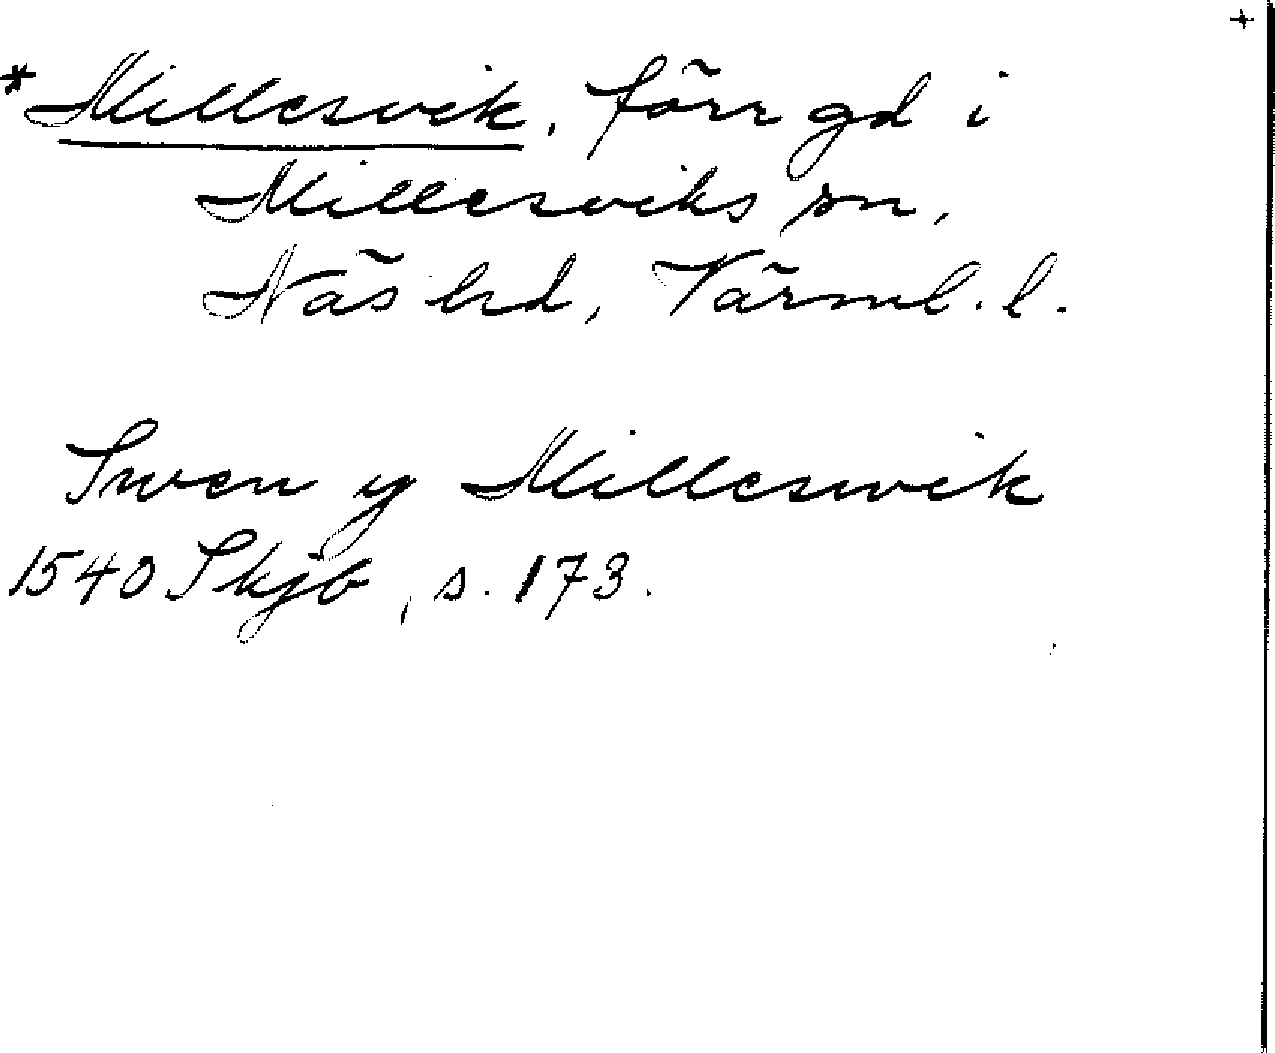 +
*Millesvik, förr gd i
Millesviks sn,
Näs hd, Värml. l.
Swen y Milleswik
1540 Skjb, s. 173.